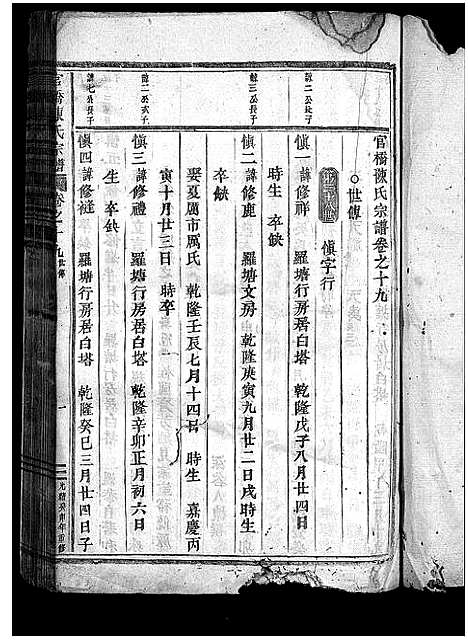 官橋陳氏宗譜卷之十九
世傳
慎字行
諒二公長子
慎一 諱修祥 羅塘行房居白塔 乾隆戊子八月廿四日
時生 卒缺
諒三公長子
慎二 諱修鹿 羅塘文房 乾隆庚寅九月廿二日戌時生
卒缺
諒二公次子
慎三 諱修禮 羅塘行房居白塔 乾隆辛卯正月初六日
生 卒缺
娶夏厲市厲氏 乾隆壬辰七月十四日 時生 嘉慶丙
寅十月廿三日 時卒
諒七公長子
慎四 諱修 羅塘行房居白塔 乾隆癸巳三月廿四日子
官橋陳氏宗譜 卷之十九 世傳
一
光緒 年重修